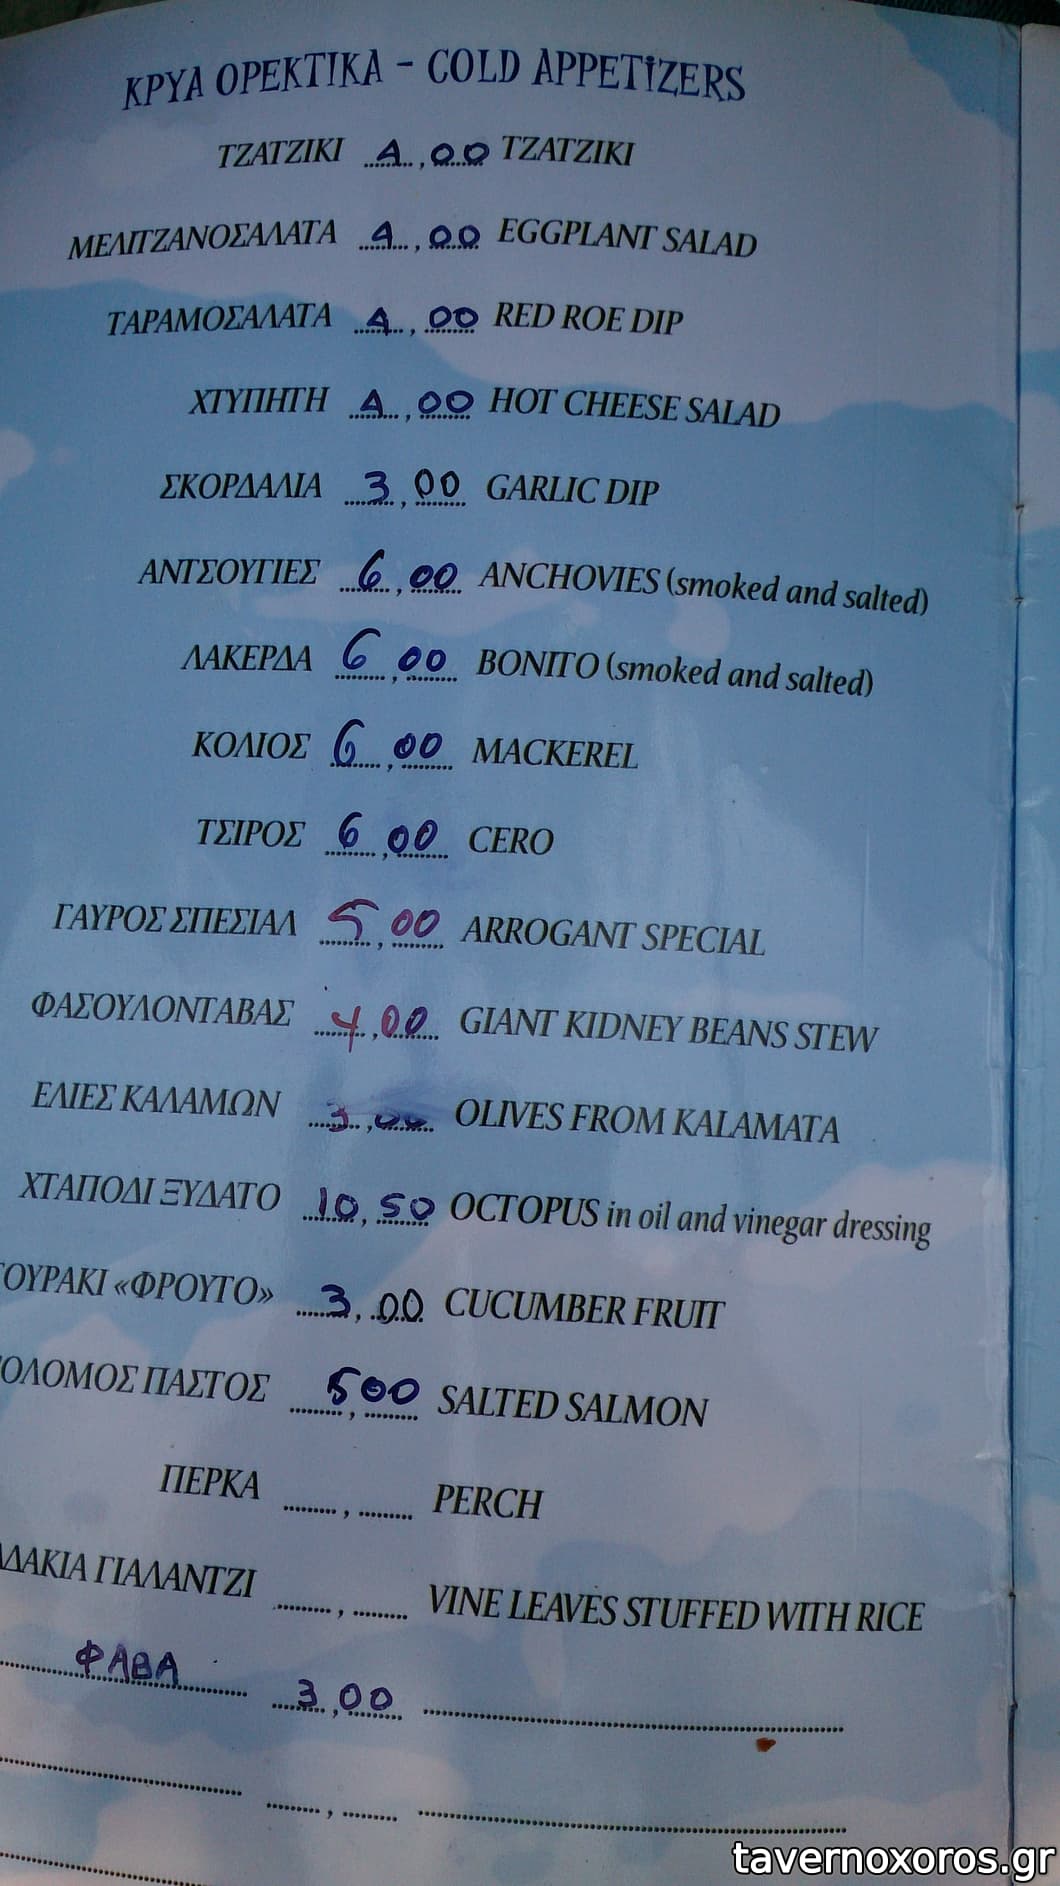 ΚΡΥΑ ΟΡΕΚΤΙΚΑ - COLD APPETIZERS
ΤΖΑΤΖΙΚΙ 4,00 TZATZIKI
ΜΕΛΙΤΖΑΝΟΣΑΛΑΤΑ 4,00 EGGPLANT SALAD
ΤΑΡΑΜΟΣΑΛΑΤΑ 4,00 RED ROE DIP
ΧΤΥΠΗΤΗ 4,00 HOT CHEESE SALAD
ΣΚΟΡΔΑΛΙΑ 3,00 GARLIC DIP
ΑΝΤΣΟΥΓΙΕΣ 6,00 ANCHOVIES (smoked and salted)
ΛΑΚΕΡΔΑ 6,00 BONITO (smoked and salted)
ΚΟΛΙΟΣ 6,00 MACKEREL
ΤΣΙΡΟΣ 6,00 CERO
ΓΑΥΡΟΣ ΣΠΕΣΙΑΛ 5,00 ARROGANT SPECIAL
ΦΑΣΟΥΛΟΝΤΑΒΑΣ 4,00 GIANT KIDNEY BEANS STEW
ΕΛΙΕΣ ΚΑΛΑΜΩΝ 3,00 OLIVES FROM KALAMATA
ΧΤΑΠΟΔΙ ΞΥΔΑΤΟ 10,50 OCTOPUS in oil and vinegar dressing
ΟΥΡΑΚΙ «ΦΡΟΥΤΟ» 3,00 CUCUMBER FRUIT
ΟΛΟΜΟΣ ΠΑΣΤΟΣ 5,00 SALTED SALMON
ΠΕΡΚΑ ........., ......... PERCH
ΔΑΚΙΑ ΓΙΑΛΑΝΤΖΙ ........., ......... VINE LEAVES STUFFED WITH RICE
ΦΑΒΑ 3,00
tavernoxoros.gr